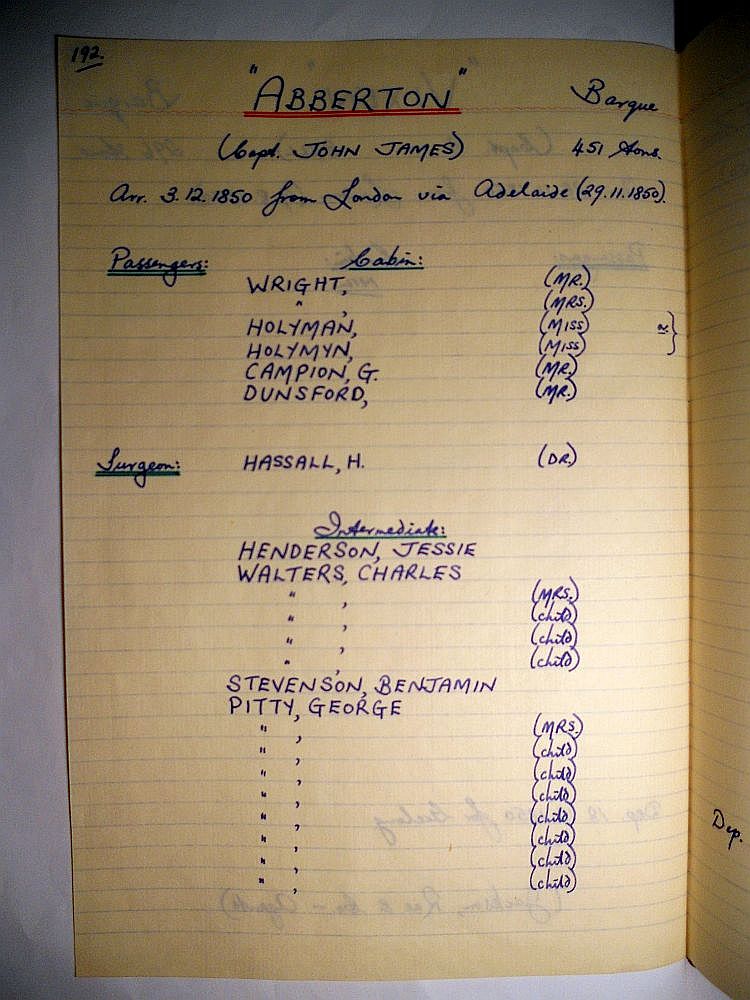 192.
"ABBERTON" Barque
(Capt. JOHN JAMES) 451 tons.
Arr. 3.12.1850 from London via Adelaide (29.11.1850).
Passengers: Cabin:
WRIGHT, (MR.)
" , (MRS.)
HOLYMAN, (MISS)
HOLYMYN, (MISS) } a
CAMPION, G. (MR.)
DUNSFORD, (MR.)
Surgeon: HASSALL, H. (DR.)
Intermediate:
HENDERSON, JESSIE
WALTERS, CHARLES
" , (MRS.)
" , (child)
" , (child)
" , (child)
STEVENSON, BENJAMIN
PITTY, GEORGE
" , (MRS.)
" , (child)
" , (child)
" , (child)
" , (child)
" , (child)
" , (child)
" , (child)
Dep.